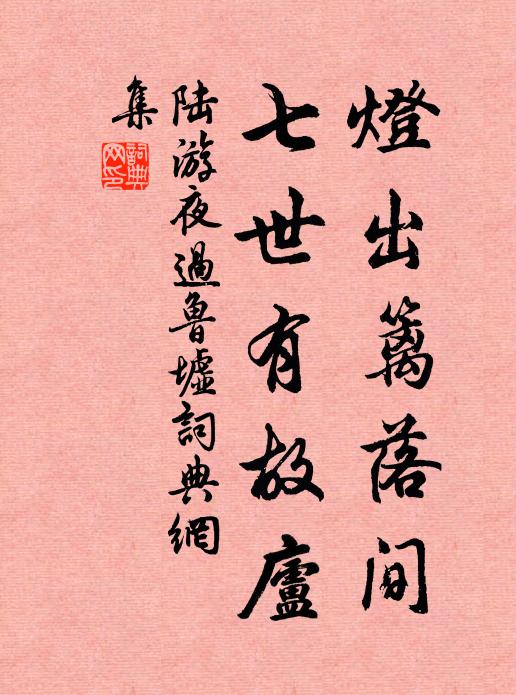 燈出籬落間
七世有故廬
陸游夜過魯墟詞典網
集
詞典
网印